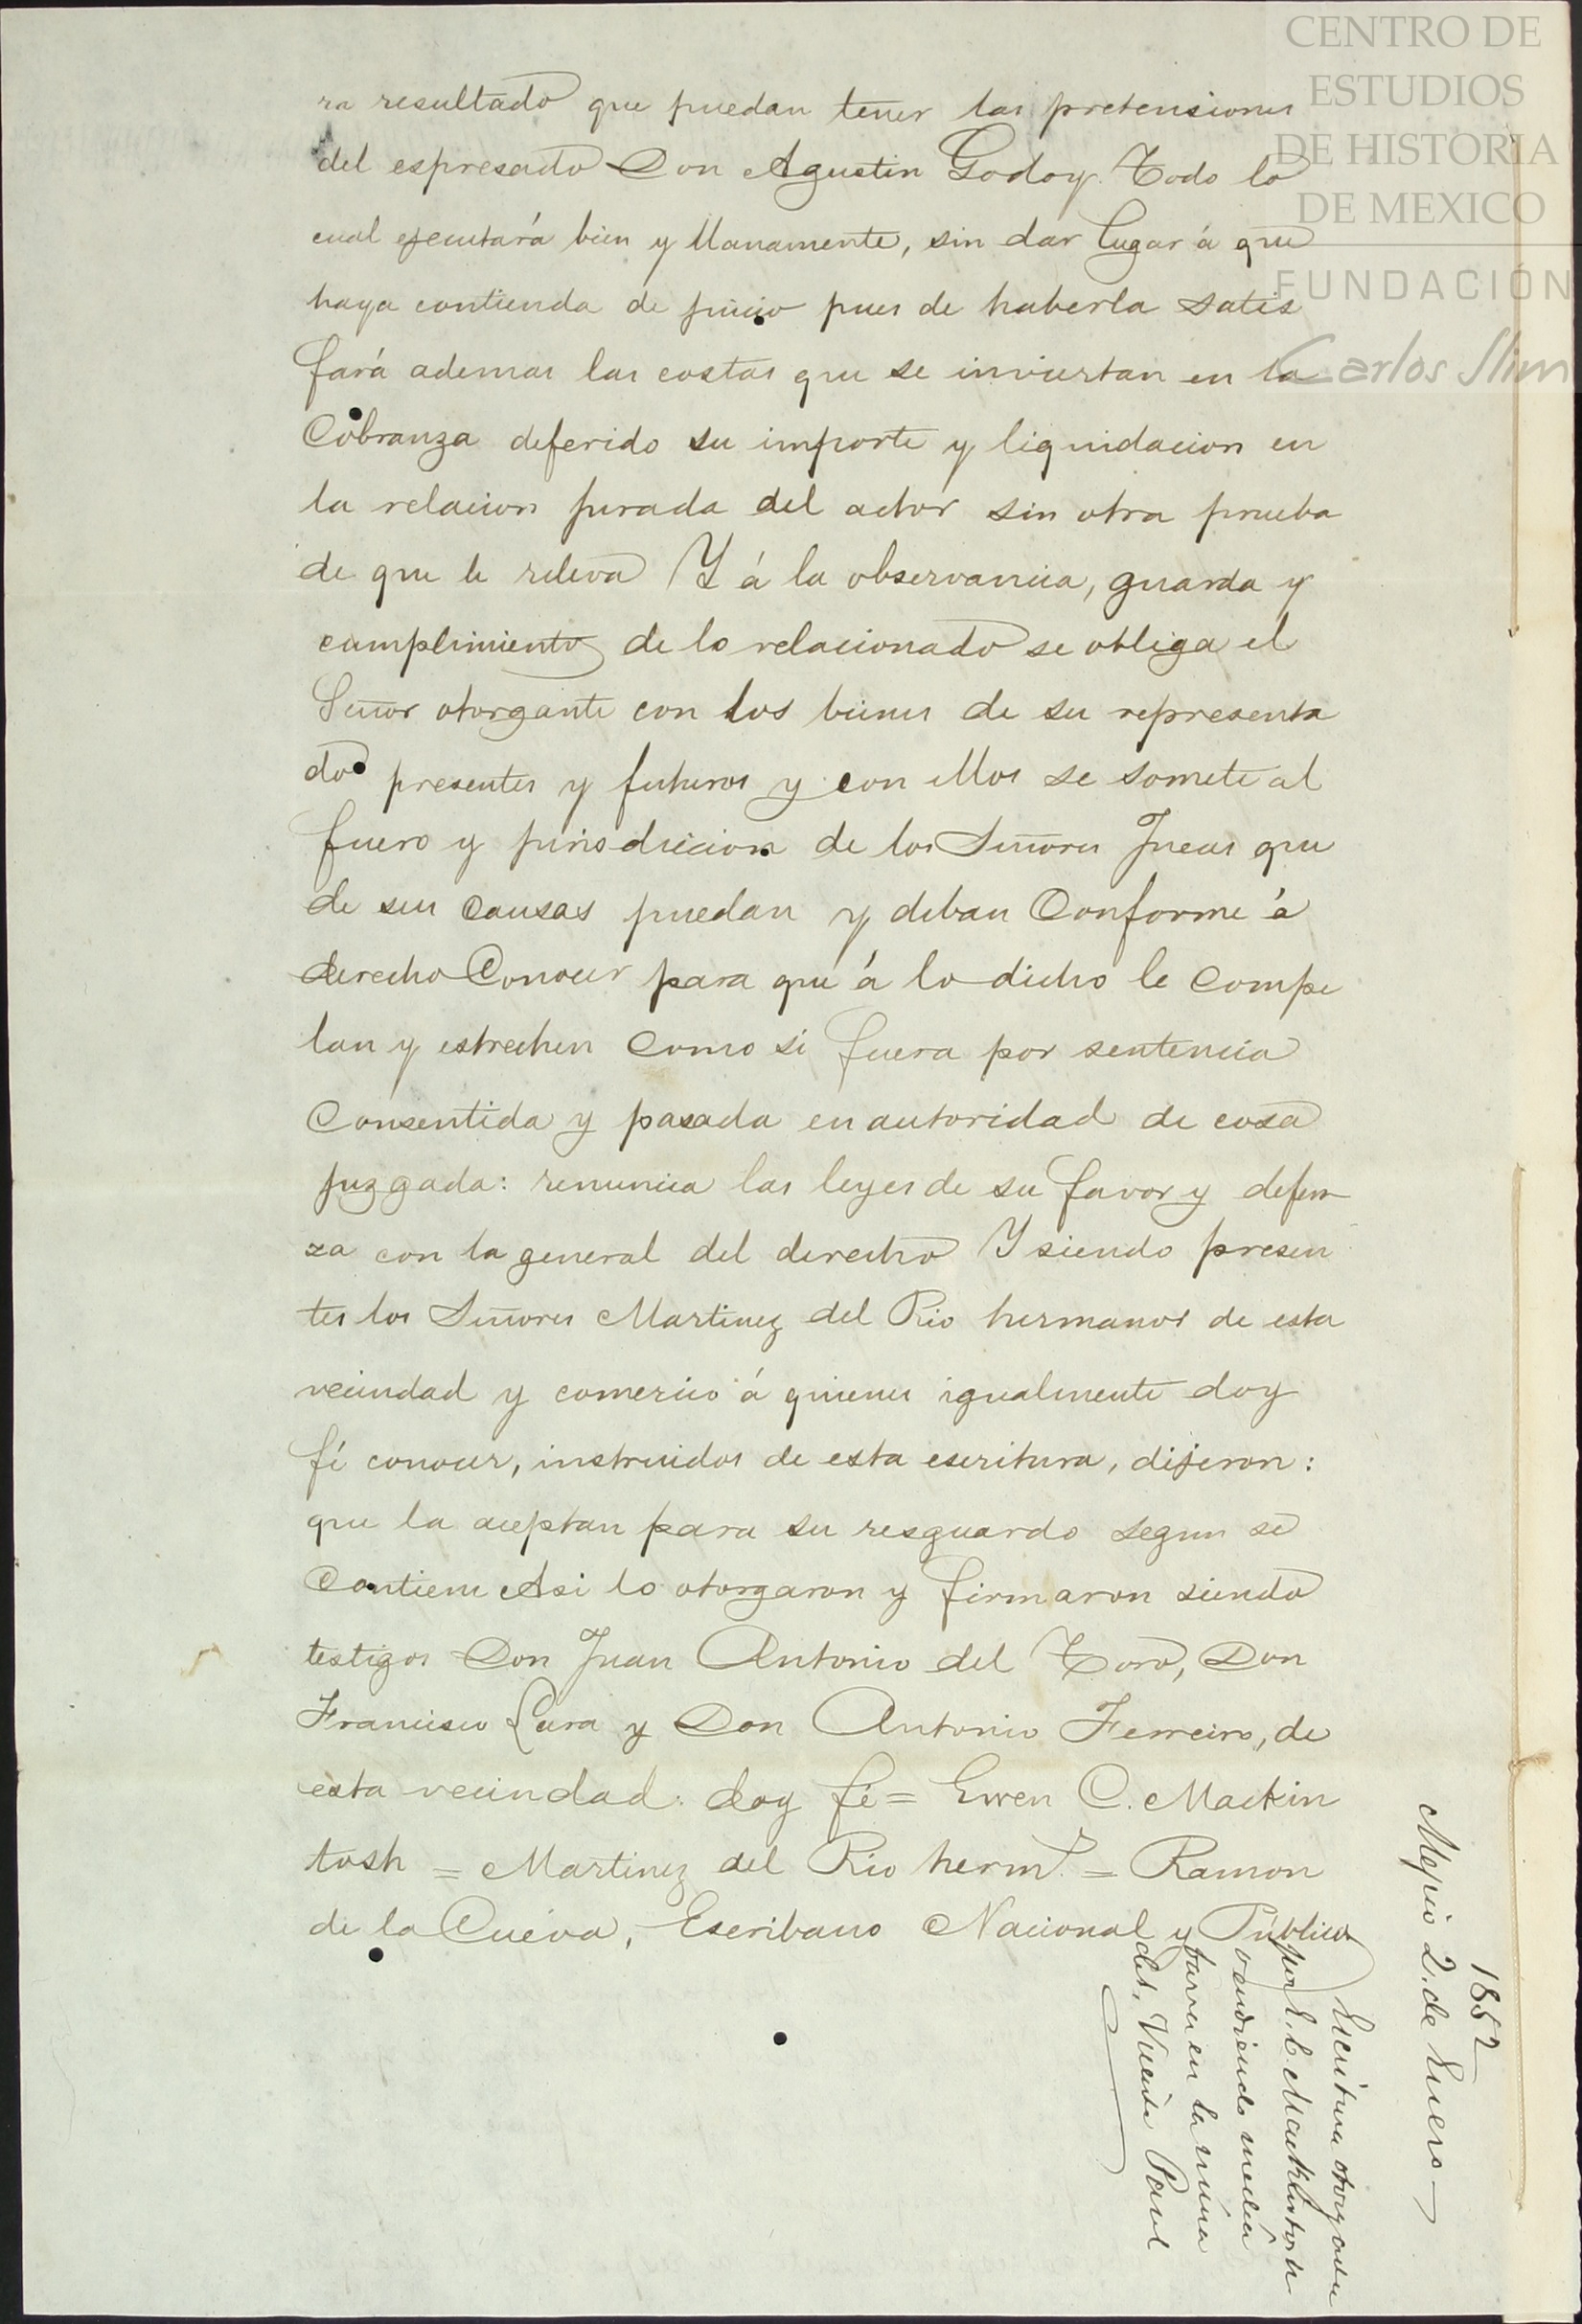 CENTRO DE
ESTUDIOS
DE HISTORIA
DE MEXICO
FUNDACIÓN
Carlos Slim
ra resultado que puedan tener las pretensiones
del espresado Don Agustin Godoy. Todo lo
cual ejecutará bien y llanamente, sin dar lugar á que
haya contienda de juicio pues de haberla satis
fará ademas las costas que se inviertan en la
Cobranza deferido su importe y liquidacion en
la relacion jurada del actor sin otra prueba
de que le releva Y á la observancia, guarda y
cumplimiento de lo relacionado se obliga el
Señor otorgante con los bienes de su representa
do presentes y futuros y con ellos se somete al
fuero y jurisdiccion de los Señores Jueces que
de sus causas puedan y deban Conforme á
derecho Conocer para que á lo dicho le compe
lan y estrechen como si fuera por sentencia
Consentida y pasada en autoridad de cosa
juzgada: renuncia las leyes de su favor y defen
za con la general del derecho Y siendo presen
tes los Señores Martinez del Rio hermanos de esta
vecindad y comercio á quienes igualmente doy
fé conocer, instruidos de esta escritura, dijeron:
que la aceptan para su resguardo segun se
Contiene Asi lo otorgaron y firmaron siendo
testigos Don Juan Antonio del Toro, Don
Francisco Lara y Don Antonio Ferreiro, de
esta vecindad: doy fé = Ewen C. Mackin
tosh = Martinez del Rio herms. = Ramon
de la Cueva, Escribano Nacional y Público
1852
Mejico 2. de Enero
Escritura otorgada
por E. C. Mackintosh
vendiendo media
barra en la mina
de S. Vicente Paul